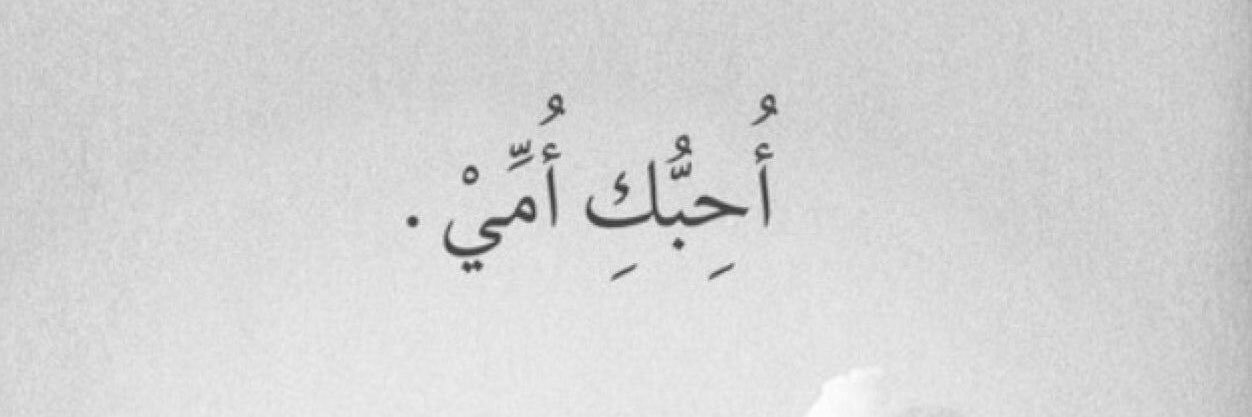 أُحِبُّكِ أُمِّيْ .